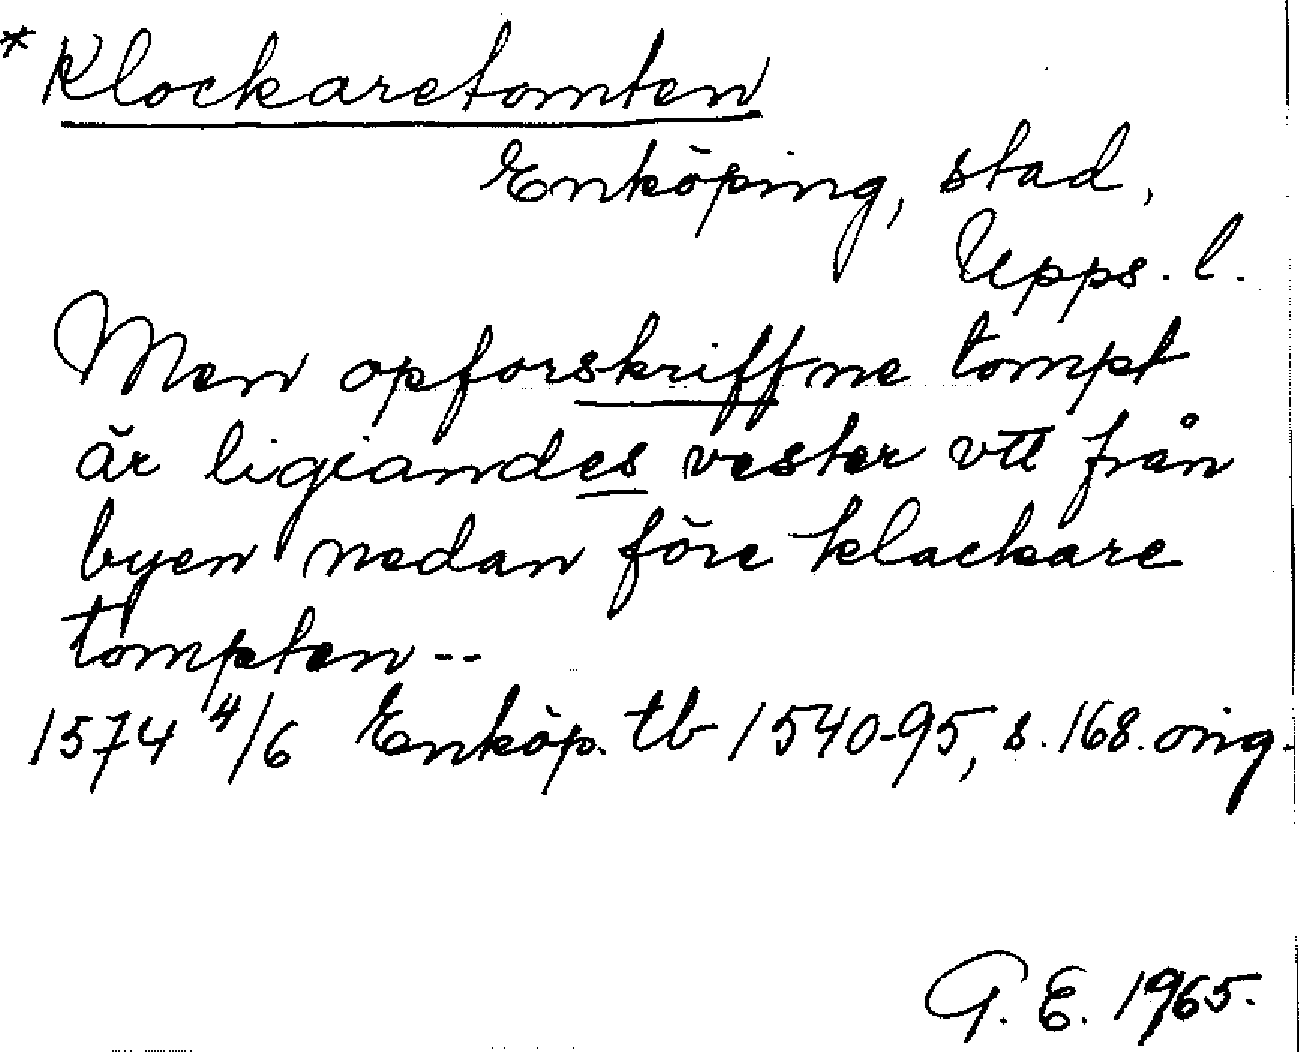 * Klockaretomten
Enköping, stad,
Upps. l.
Men opforskriffne tompt
är ligiandes vester vtt från
byen nedan före klackare
tompten --
1574 4/6 Enköp. tb 1540-95, s. 168. orig.
G. E. 1965.